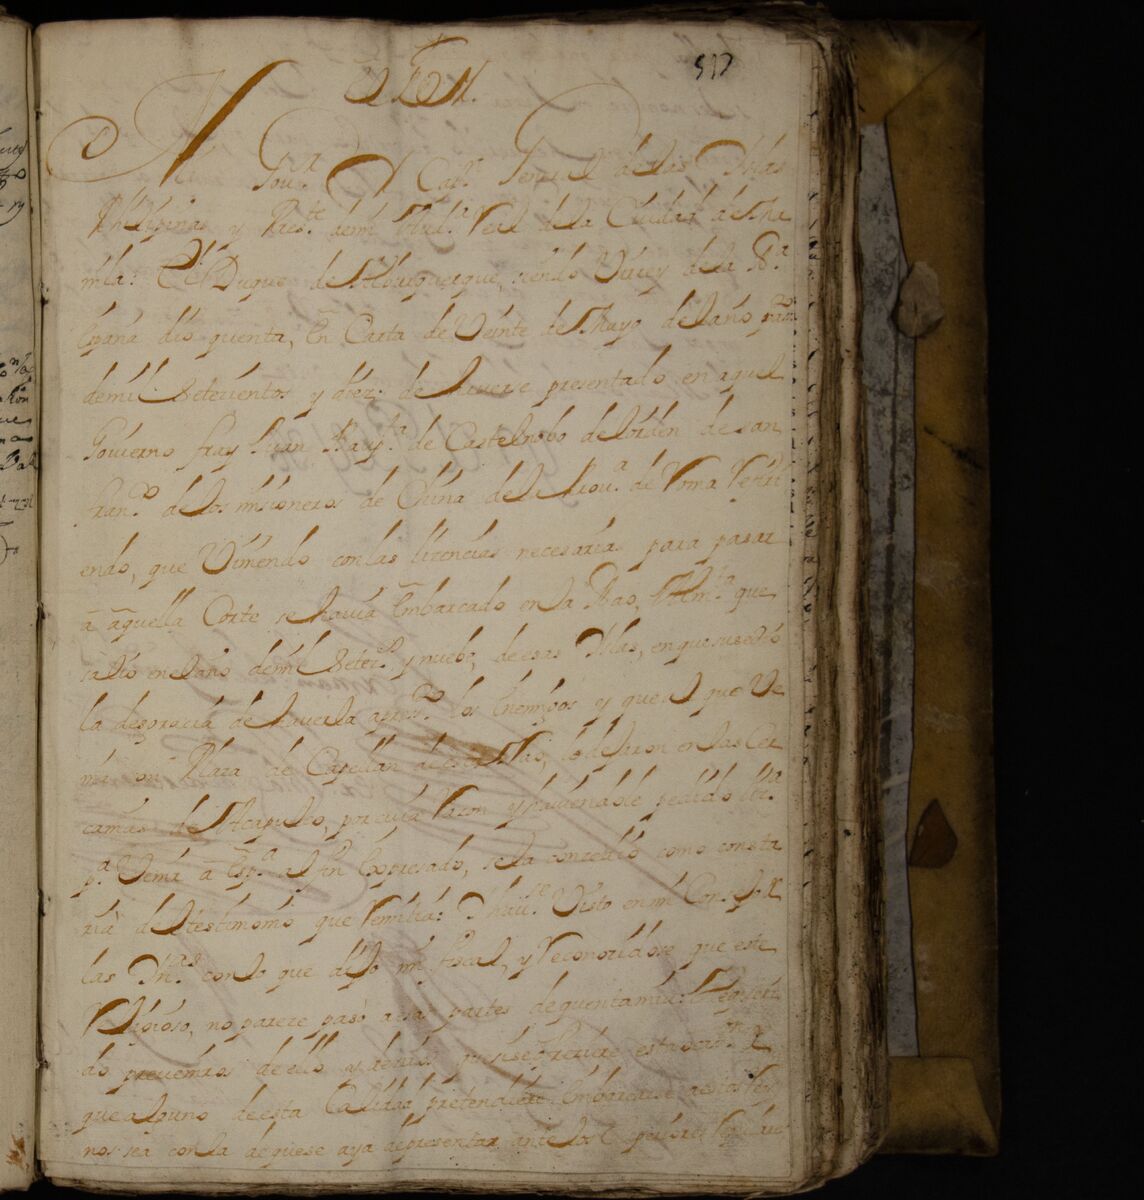 517
El Rey.
Gov.r y Cap.n General de las Yslas
Philipinas y Pres.te de mi Aud.a Real de la Ciudad de Ma
nila: El Duque de Alburquerque, siendo Virrey de la N.a
españa dio quenta, en Carta de Veinte de Mayo del año pas.do
de mil setecientos y diez, de haverse presentado en aquel
Govierno fray Juan Bap.ta de Castelnobo del orden de san
fran.co de los misioneros de China de la Prov.a de Roma
endo, que viniendo con las licencias necesarias para pasar
a aquella Corte se havia embarcado en la Nao, Alm.ta que
salio en el año de mil setec.os y nuebe, de esas Yslas, en que susedio
la desgracia de haverla apres.do los Enemigos y que el que ve
nia con Plaza de Capellan de esas Yslas, lo dejaron en las Cer
canias de Acapulco, por cuia Razon y haviendole pedido liz.a
p.a venir a Esp.a al fin expresado, se la concedio como consta
ria del testimonio que remitia: Y haviendose visto en mi Consejo R
las Yn.as con lo que dijo mi fiscal, y reconocidose que este
Religioso, no parece pasò a esas partes de quenta mia:
do preveniros de ello
que alguno de esta Calidad pretendiere embarcarse a estos Rey
nos sea con la de que se aya de presentar ante los